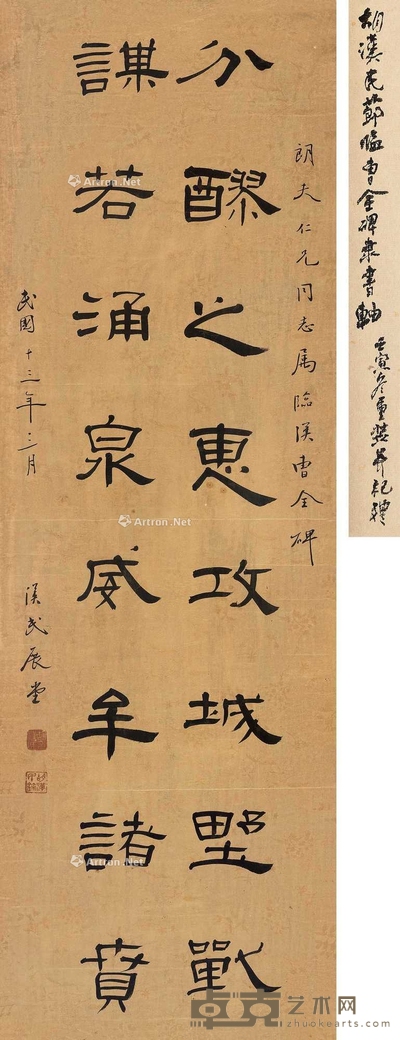 胡漢民節臨曹全碑隸書軸
壬寅冬重裝并記禮
朗夫仁兄同志属臨漢曹全碑
分醪之惠攻城野戰
謀若涌泉威牟諸賁
民國十三年三月
漢民展堂
Artron.Net
Artron.Net
Artron.Net
卓克艺术网
www.zhuokearts.com